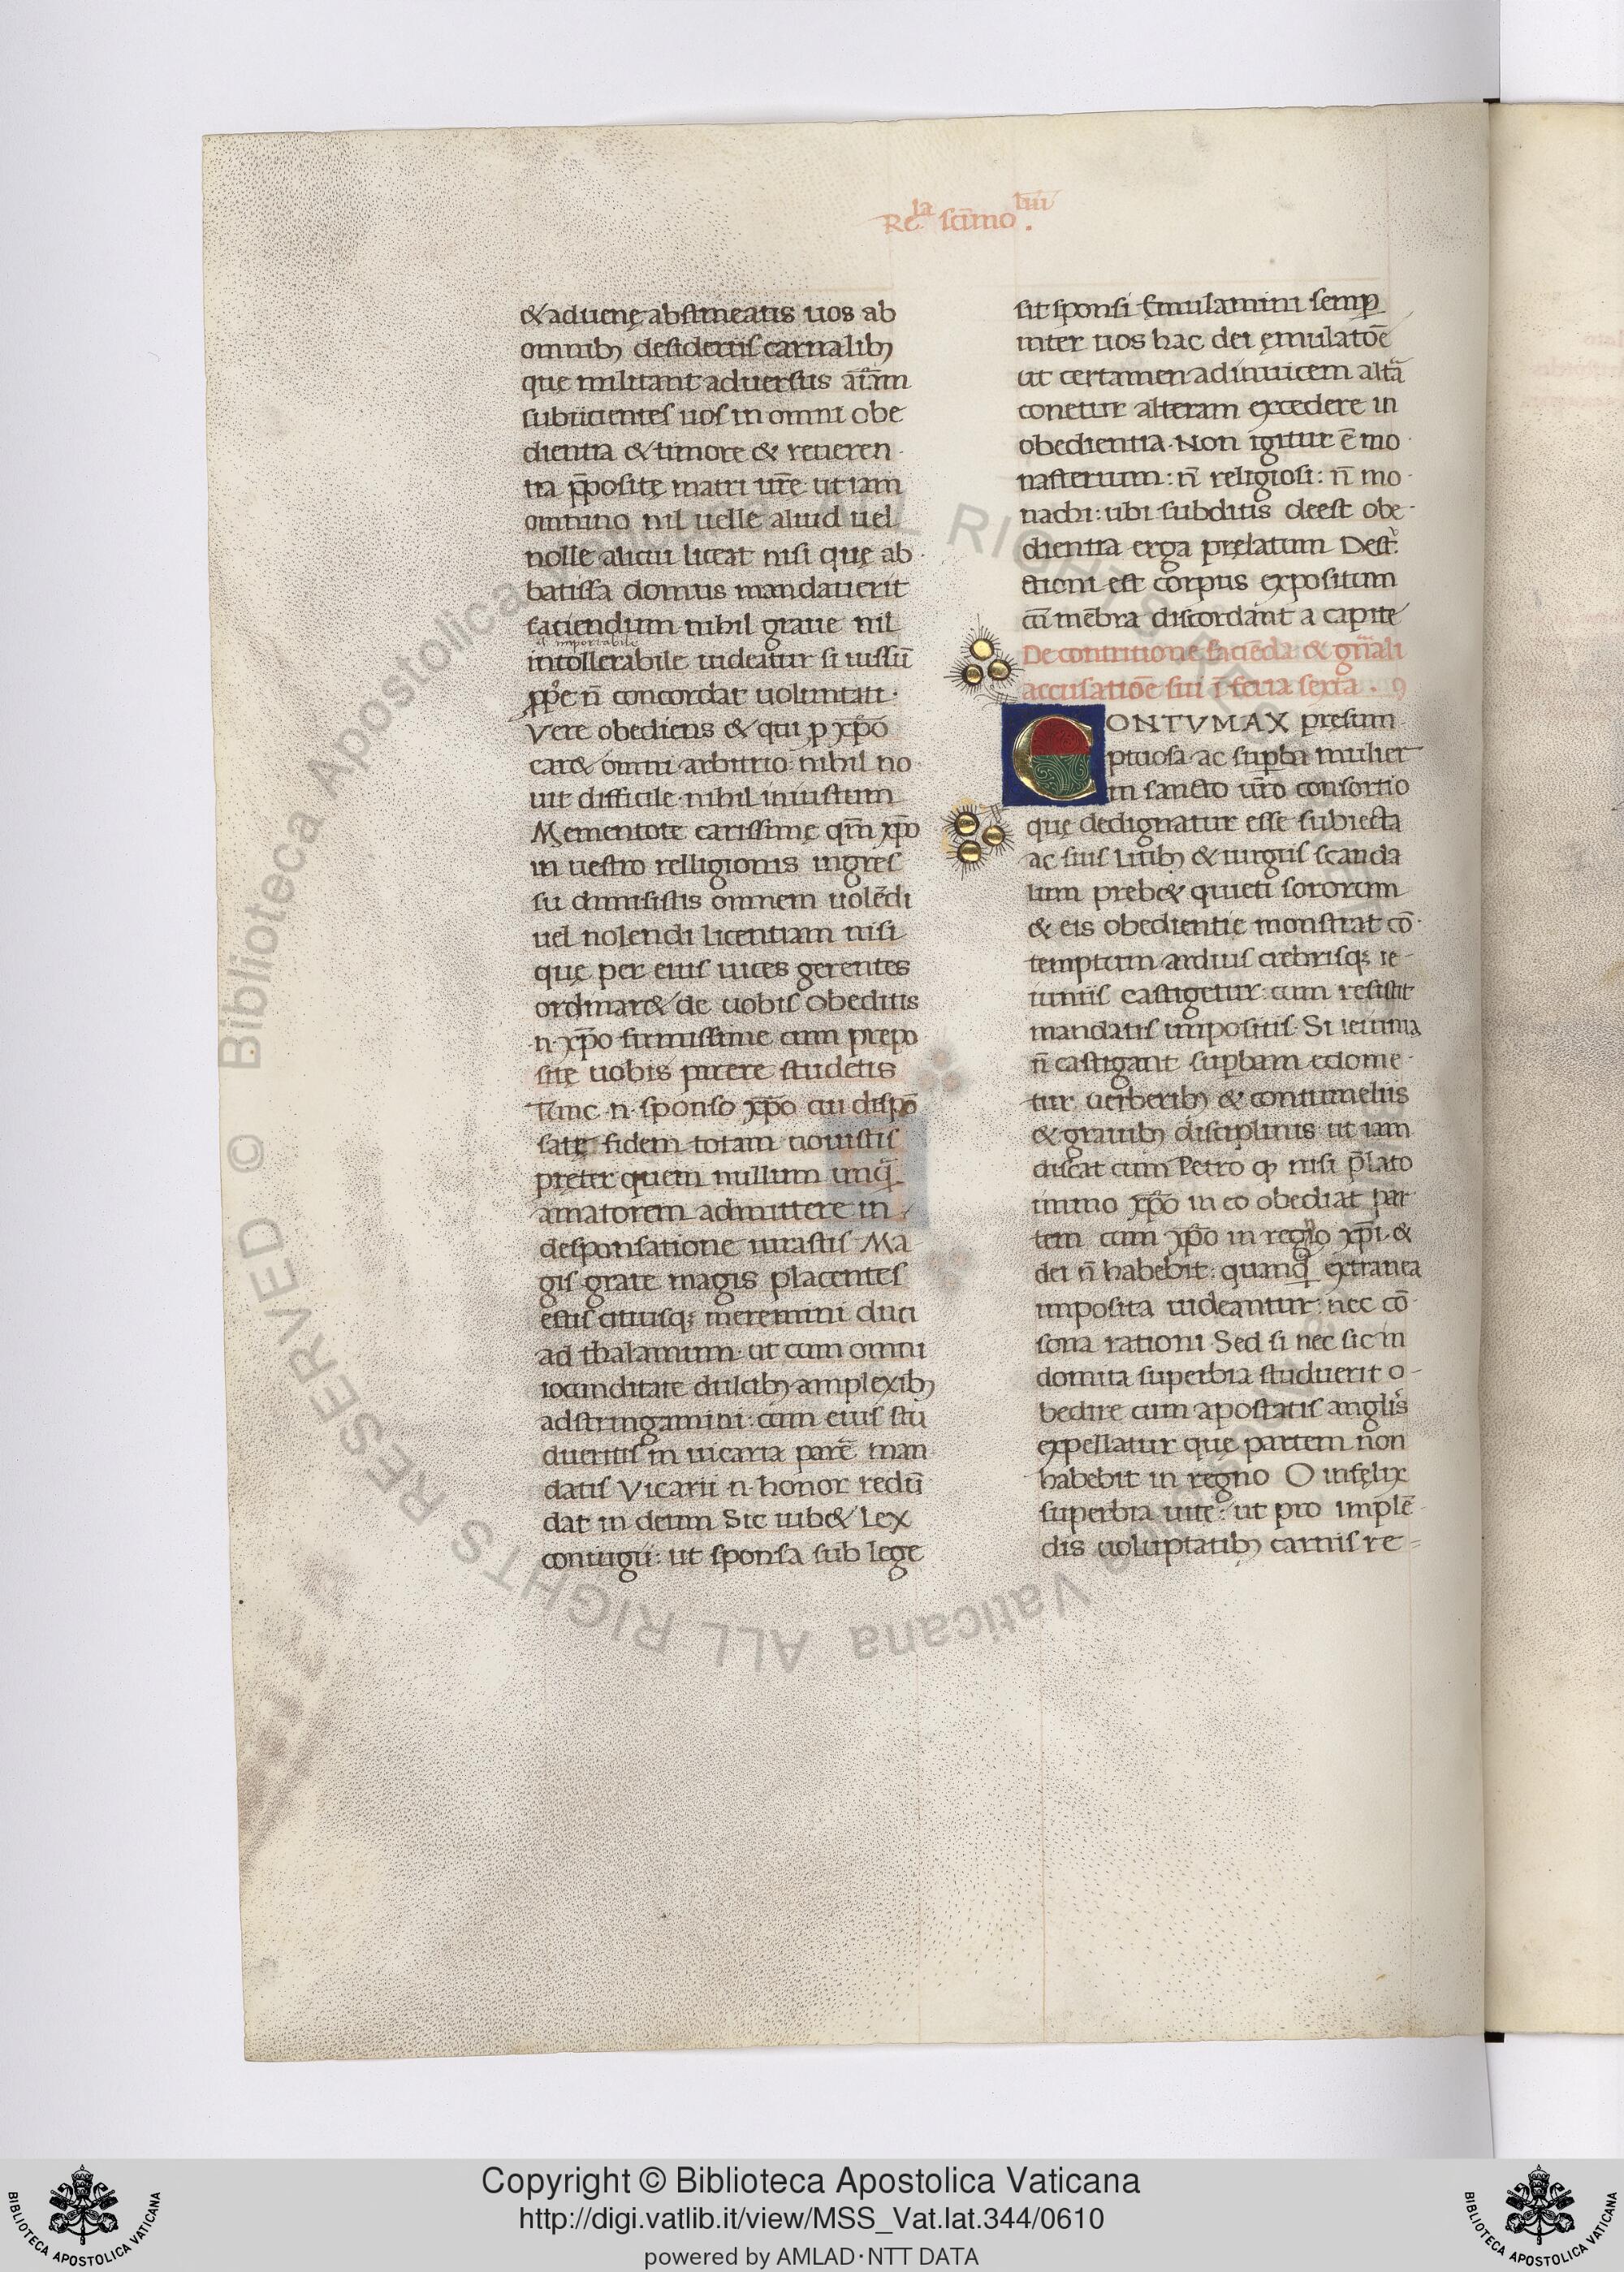 Re^la sc̄imo. ^liii
& aduenę abstineatis uos ab
omnibꝫ desideriis carnalibꝫ
que militant aduersus aīam
subiicientes uos in omni obe
dientia & timore & reueren
tia p̄positę matri ur̄e ut iam
omnino nil uelle aliud uel
nolle alicui liceat nisi quę ab
batissa domus mandauerit
faciendum nihil graue nil
ul importabile
intollerabile uideatur si iussū
n̄ concordat uoluntati.
Vere obediens & qui ꝑ xp̄o
car& omni arbitrio: nihil no
uit difficile. nihil iniustum
Mementote carissimę qm̄ xp̄o
in uestro relligionis ingres
su dimisistis omnem uolēdi
uel nolendi licentiam nisi
quę per eius uices gerentes
ordinar& de uobis Obeditis
.n. xp̄o firmissime cum prepo
sitę uobis parere studetis
Tunc .n. sponso xp̄o cui dispō
satę fidem totam uouistis
pręter quem nullum unq̄
amatorem admittere in
desponsatione iurastis Ma
gis grate magis placentes
estis citiusqꝫ meremini duci
ad thalamum. ut cum omni
iocunditate dulcibꝫ amplexibꝫ
adstringamini: cum eius stu
dueritis in uicaria parē man
datis Vicarii .n. honor redū
dat in deum Sic iub& Lex
coniugii: ut sponsa sub lege
sit sponsi Emulamini semꝑ
inter uos hac dei ęmulatōe
ut certamen adinuicem altā
conetur alteram excedere in
obedientia. Non igitur ē mo
nasterium: n̄ religiosi: n̄ mo
nachi: ubi subditis deest obe-
dientia erga prelatum Destr̄
ctioni est corpus expositum
cū mēbra discordant a capite
De contritione faciēda & gn̄ali
accusatiōe sui ī feria sexta. 9
CONTVMAX presum
ptuosa ac suꝑba mulier
in sancto ur̄o consortio
quę dedignatur esse subiecta
ac suis litibꝫ & iurgiis scanda
lum preb& quieti sororum
& eis obedientie monstrat cō
temptum arduis crebrisqꝫ ie-
iuniis castigetur: cum resistit
mandatis impositis. Si ieiunia
n̄ castigant suꝑbam edome-
tur uerberibꝫ & contumeliis
& grauibꝫ disciplinis ut iam
discat cum Petro ꝙ nisi p̄lato
immo xp̄o in eo obediat par
tem cum xp̄o in regno xp̄i &
dei n̄ habebit. quanq̄ extranea
imposita uideantur: nec cō
sona rationi. Sed si nec sic in
domita superbia studuerit o-
bedire cum apostatis anglis
expellatur que partem non
habebit in regno O infęlix
superbia uite: ut pro implē
dis uoluptatibꝫ carnis re=
Copyright © Biblioteca Apostolica Vaticana
http://digi.vatlib.it/view/MSS_Vat.lat.344/0610
powered by AMLAD·NTT DATA
BIBLIOTECA APOSTOLICA VATICANA
BIBLIOTECA APOSTOLICA VATICANA
© Biblioteca Apostolica Vaticana ALL RIGHTS RESERVED